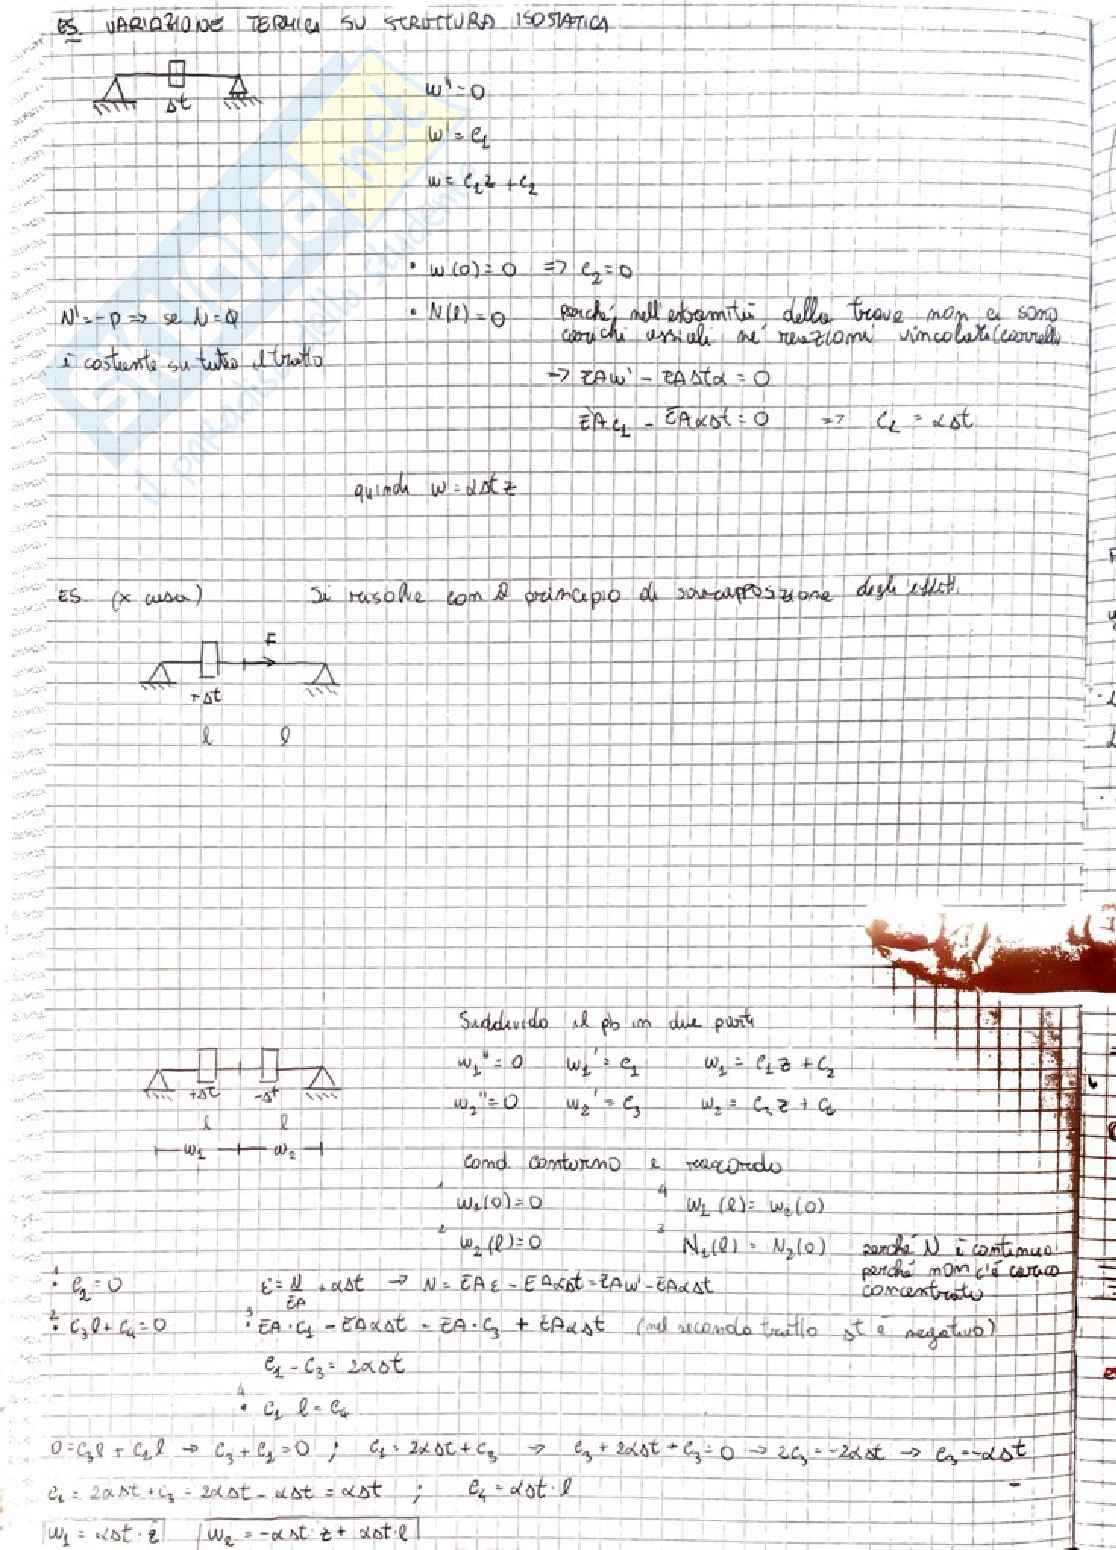 ES. VARIAZIONE TERMICA SU STRUTTURA ISOSTATICA
Δt
w''=0
w'=c₁
w=c₁z+c₂
• w(0)=0 => c₂=0
N'=-p => se N=0
è costante su tutto il tratto
• N(l)=0 perché nell'estremità della trave non ci sono
carichi assiali né reazioni vincolari (carrello
=> EAw' - EAΔtα = 0
EAc₁ - EAαΔt = 0 => c₁ = αΔt
quindi w=αΔtz
ES. (x casa) Si risolve con il principio di sovrapposizione degli effetti.
F
+Δt
l l
Suddivido il pb in due parti
w₁''=0 w₁'=c₁ w₁=c₁z+c₂
w₂''=0 w₂'=c₃ w₂=c₃z+c₄
+Δt -Δt
l l
w₁ w₂
cond. contorno e raccordo
1 w₁(0)=0 4 w₁(l)=w₂(0)
2 w₂(l)=0 3 N₁(l)=N₂(0) perché N è continuo
perché non c'è carico
concentrato
1 • c₂=0 ε=N/EA+αΔt → N=EAε-EAαΔt=EAw'-EAαΔt
2 • c₃l+c₄=0 3 • EA·c₁-EAαΔt=EA·c₃+EAαΔt (nel secondo tratto Δt è negativo)
c₁-c₃=2αΔt
4 • c₁l=c₄
0=c₃l+c₁l → c₃+c₁=0 ; c₁=2αΔt+c₃ → c₃+2αΔt+c₃=0 → 2c₃=-2αΔt → c₃=-αΔt
c₁=2αΔt+c₃=2αΔt-αΔt=αΔt ; c₄=αΔt·l
w₁=αΔt·z w₂=-αΔt·z+αΔt·l